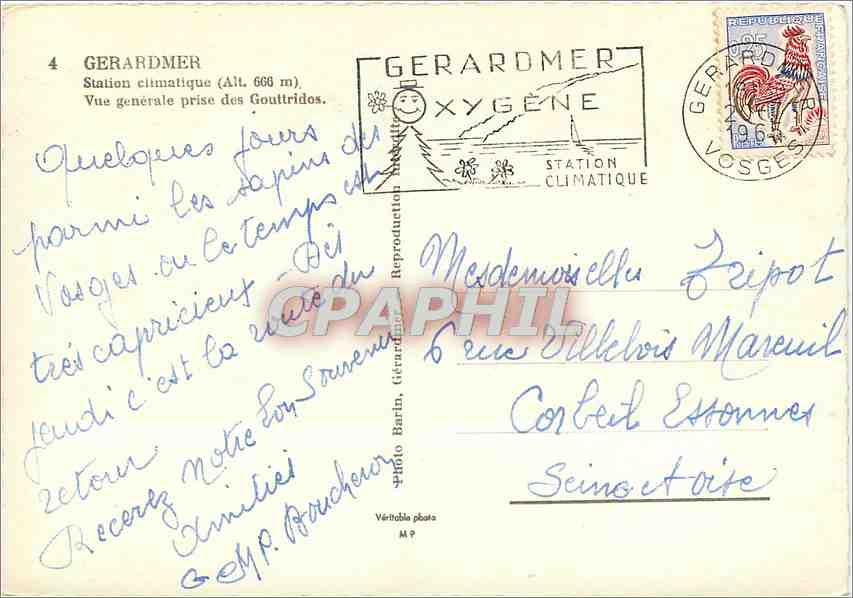 4 GERARDMER
Station climatique (Alt. 666 m)
Vue generale prise des Gouttridos.
Quelques jours
parmi les sapins des
Vosges ou le temps est
très capricieux - Dès
jeudi c'est la route du
retour
Recevez Notre bon Souvenir
Amitiés
G M P. Boucheron
Photo Barin, Gérardmer. Reproduction interdite
Véritable photo
M P
GERARDMER
OXYGÈNE
STATION
CLIMATIQUE
REPUBLIQUE FRANÇAISE
0,25
GERARDMER
196
VOSGES
Mesdemoiselles Tripot
6 rue Villebois Mareuil
Corbeil Essonnes
Seine et Oise
CPAPHIL